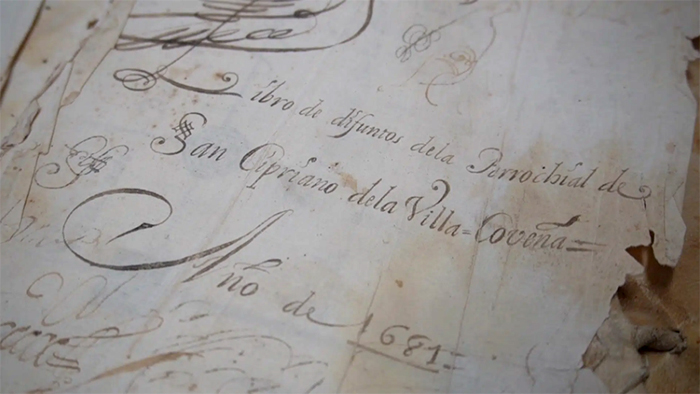 Libro de difuntos dela Perrochial de
San Cipriano dela Villa=Coveña=
Año de 1681=